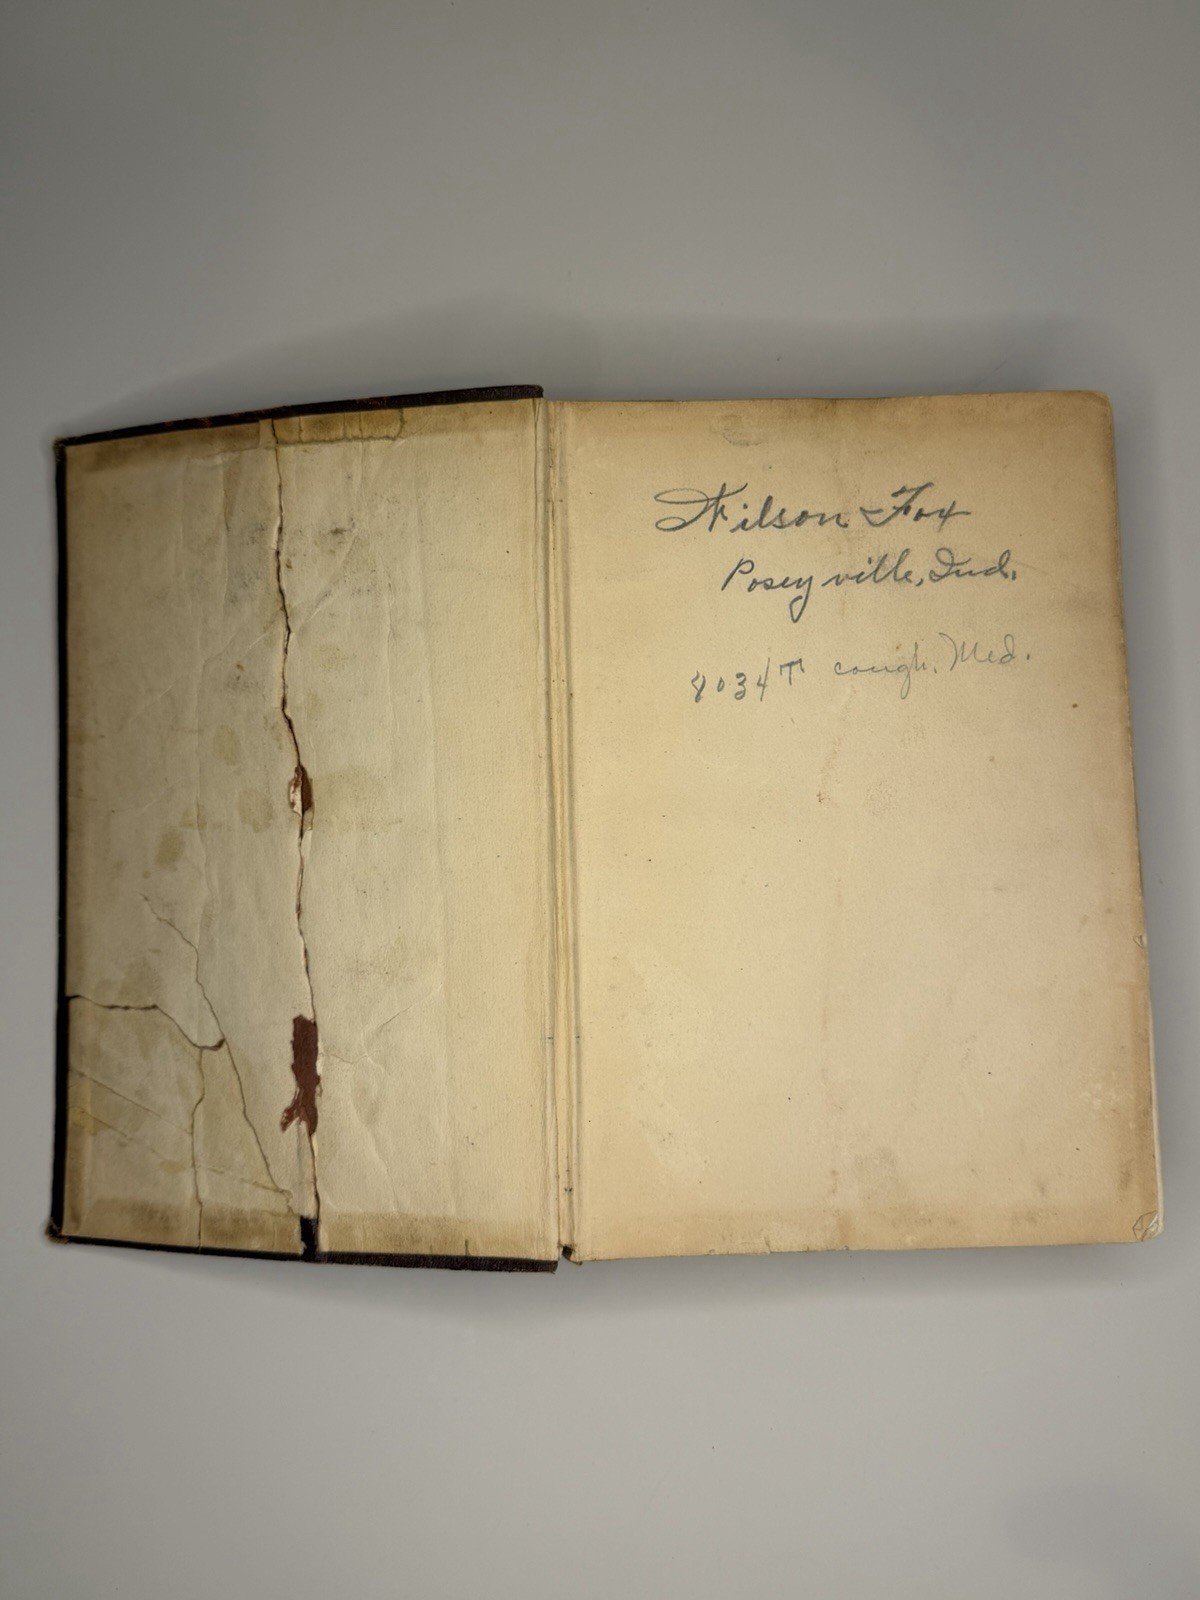 Wilson Fox
Poseyville, Ind.
8034T cough. Med.